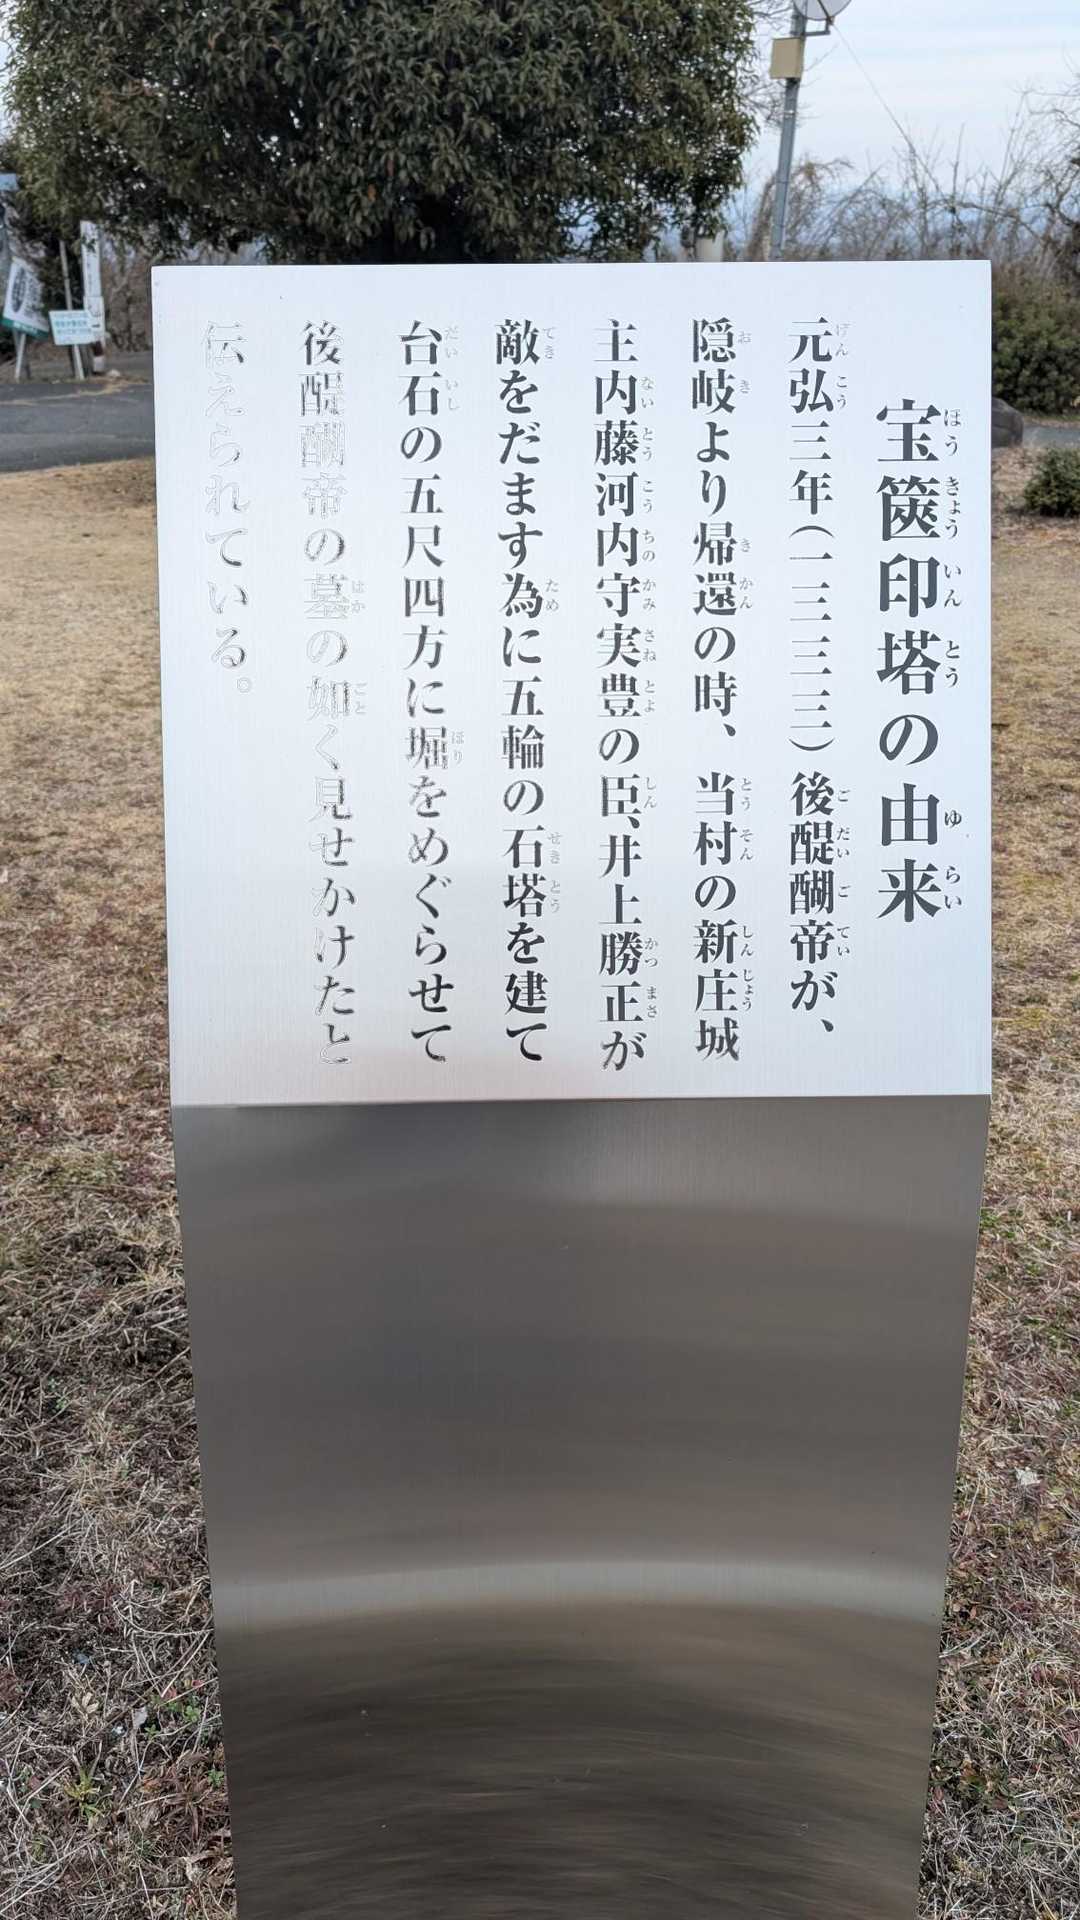 宝篋印塔の由来
元弘三年（一三三三）後醍醐帝が、
隠岐より帰還の時、当村の新庄城
主内藤河内守実豊の臣、井上勝正が
敵をだます為に五輪の石塔を建て
台石の五尺四方に堀をめぐらせて
後醍醐帝の墓の如く見せかけたと
伝えられている。